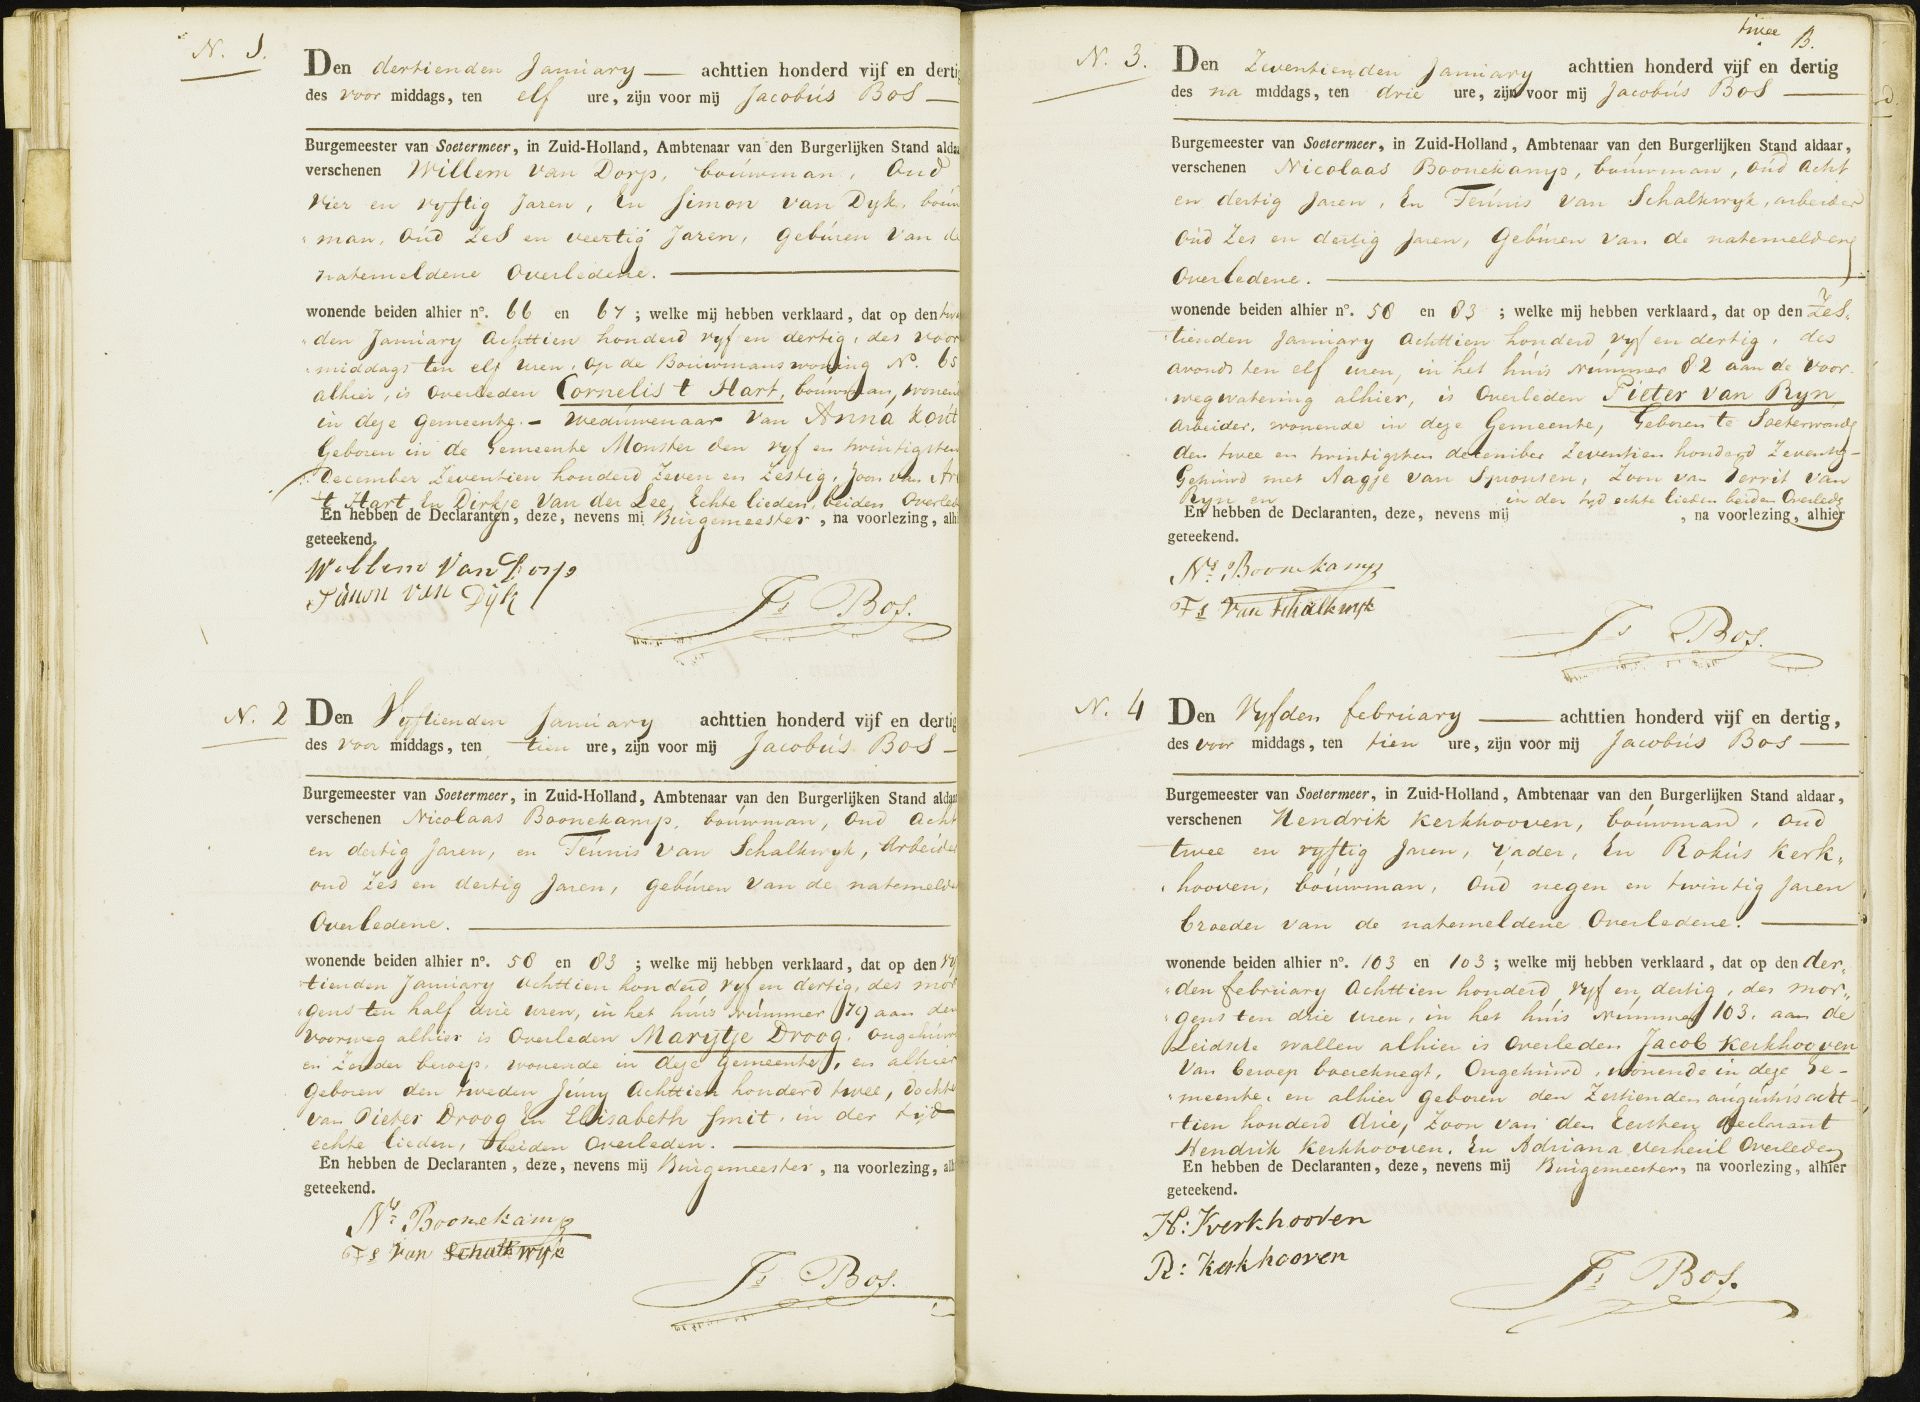 N. 1.
Den dertienden January achttien honderd vijf en derti
des voor middags, ten elf ure, zijn voor mij Jacobús Bos
Burgemeester van Soetermeer, in Zuid-Holland, Ambtenaar van den Burgerlijken Stand aldaa
verschenen Willem van Dorp, bouwman, Oud
vier en vyftig Jaren, En Simon van Dyk, bouw
man, oúd zes en veertig Jaren, Gebúren van de
natemeldene Overledene.
wonende beiden alhier no. 66 en 67; welke mij hebben verklaard, dat op den
den January Achttien honderd vyf en dertig, des voor
middags ten elf uren, op de Bouwmanswoning No. 65
alhier, is overleden Cornelis t Hart, bouwman, wonen
in deze gemeente, - weduwenaar van Anna Kout
Geboren in de Gemeente Monster den vyf en twintigsten
December Zeventien honderd Zeven en Zestig, Zoon van
t Hart En Dirkje van der Lee, Echte lieden, beiden Overled
En hebben de Declaranten, deze, nevens mi Burgemeester, na voorlezing, alh
geteekend.
Willem van Dorp
Simon van Dyk
Js Bos.
N. 2
Den Vyftienden January achttien honderd vijf en dertig
des voor middags, ten tien ure, zijn voor mij Jacobús Bos
Burgemeester van Soetermeer, in Zuid-Holland, Ambtenaar van den Burgerlijken Stand aldaa
verschenen Nicolaas Boonekamp, bouwman, Oud Acht
en dertig Jaren, en Teunis van Schalkwyk, Arbeide
oud zes en dertig Jaren, gebúren van de natemelde
Overledene.
wonende beiden alhier no. 58 en 83; welke mij hebben verklaard, dat op den vyf
tienden January achttien honderd vyf en dertig, des mor
gens ten half drie uren, in het húis númmer 79 aan den
voorweg alhier is Overleden Marytje Droog, ongehúw
en Zonder beroep, wonende in deze gemeente, en alhier
Geboren den tweden Júny Achttien honderd twee, dochte
van Pieter Droog En Elisabeth Smit, in der tijd
echte lieden, beiden Overleden.
En hebben de Declaranten, deze, nevens mij Burgemeester, na voorlezing, alh
geteekend.
Ns Boonekamp
Ts van Schalkwijk
Js Bos.
twee
B.
N. 3.
Den Zeventienden January achttien honderd vijf en dertig
des na middags, ten drie ure, zijn voor mij Jacobús Bos
Burgemeester van Soetermeer, in Zuid-Holland, Ambtenaar van den Burgerlijken Stand aldaar,
verschenen Nicolaas Boonekamp, bouwman, oúd Acht
en dertig Jaren, En Teúnis van Schalkwyk, arbeider
Oúd Zes en dertig Jaren, Gebúren van de natemeldene
Overledene.
wonende beiden alhier no. 58 en 83; welke mij hebben verklaard, dat op den Zes
tienden January Achttien honderd vyf en dertig, des
avonds ten elf uren, in het húis númmer 82 aan de voor
wegwatering alhier, is Overleden Pieter van Ryn,
Arbeider, wonende in deze Gemeente, Geboren te Soeterwoude
den twee en twintigsten december Zeventien honderd Zeventig
Gehúwd met Aagje van Spronsen, Zoon van Gerrit van
Ryn en in der tyd echte lieden beiden Overlede
En hebben de Declaranten, deze, nevens mij , na voorlezing, alhier
geteekend.
Ns: Boonekamp
Ts van Schalkwijk
Js Bos.
N. 4
Den Vyfden february achttien honderd vijf en dertig,
des voor middags, ten tien ure, zijn voor mij Jacobús Bos
Burgemeester van Soetermeer, in Zuid-Holland, Ambtenaar van den Burgerlijken Stand aldaar,
verschenen Hendrik Kerkhooven, bouwman, oud
twee en vyftig Jaren, vader, En Rokús Kerk
hooven, bouwman, Oúd negen en twintig Jaren
broeder van de natemeldene Overledene.
wonende beiden alhier no. 103 en 103; welke mij hebben verklaard, dat op den der
den february Achttien honderd vyf en dertig, des mor
gens ten drie uren, in het húis Númmer 103, aan de
Leidsche wallen alhier is Overleden Jacob Kerkhooven
van beroep boereknegt, Ongehúwd, wonende in deze Ge
meente, en alhier geboren den Zestienden augústús acht
tien honderd drie, Zoon van den Eersten declarant
Hendrik Kerkhooven, En Adriana Verheul Overleden
En hebben de Declaranten, deze, nevens mij Burgemeester, na voorlezing, alhier
geteekend.
H: Kerkhooven
R: Kerkhooven
Js Bos.